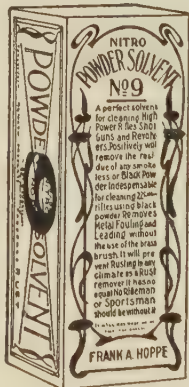 NITRO
POWDER SOLVENT
No 9
A perfect solvent
for cleaning High
Power Rifles Shot
Guns and Revolv
ers. Positively will
remove the resi
due of any smoke
less or Black Pow
der Indespensable
for cleaning 22Cal
rifles using black
powder Removes
Metal Fouling and
Leading without
the use of the brass
brush. It will pre
vent Rusting in any
climate as a Rust
remover it has no
equal No Rifleman
or Sportsman
should be without it
FRANK A. HOPPE
POWDER SOLVENT